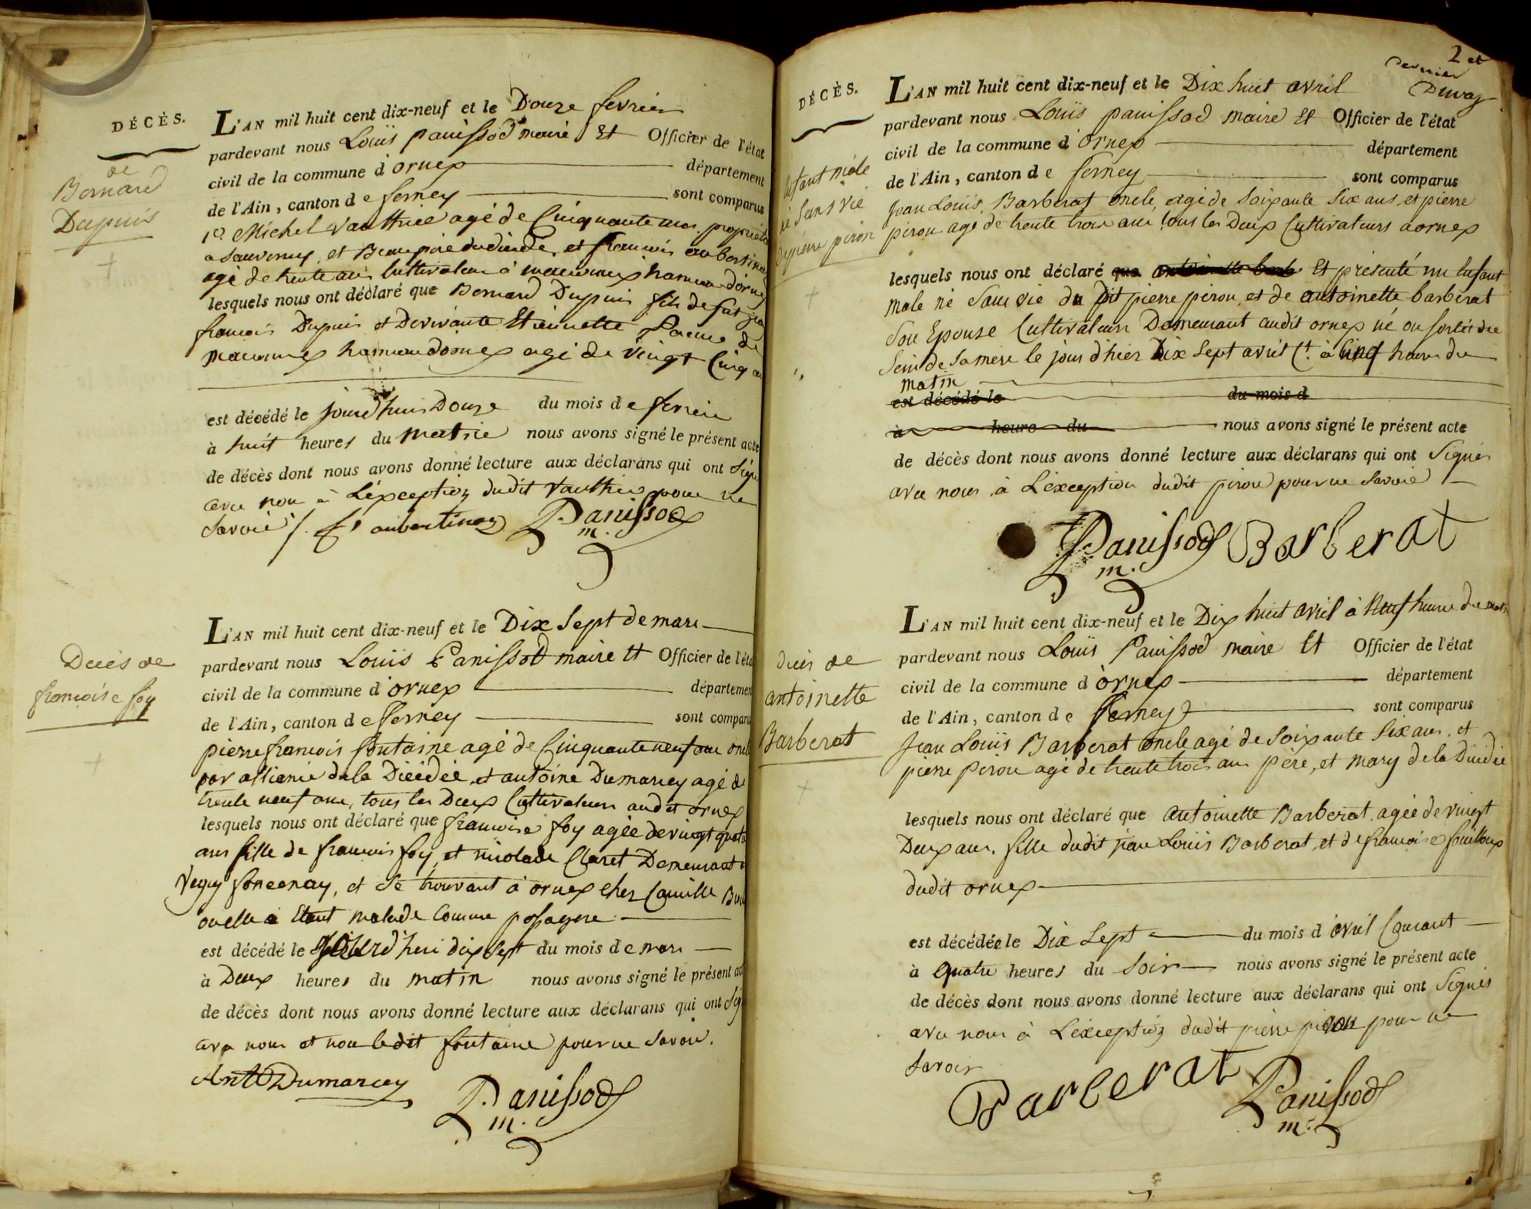 DÉCÈS.
de
Bernard
Dupuis
L'AN mil huit cent dix-neuf et le Douze fevrier
pardevant nous Louis panissod maire Et Officier de l'état
civil de la commune d'ornex département
de l'Ain, canton de ferney sont comparus
1er Michel Vauthier agé de Cinquante ans propriétaire
a Sauverny, et Beau pere du décédé, et francois aubertin
agé de trente ans Cultivateur à maconnex hameau d'ornex
lesquels nous ont déclaré que Bernard Dupuis fils de fut
francois Dupuis et Devivante Etiennette de
maconnex hameau dornex agé de vingt Cinq ans
est décédé le jourd'hui Douze du mois de fevrier
à huit heures du matin nous avons signé le présent acte
de décès dont nous avons donné lecture aux déclarans qui ont signé
avec nous à L'exception dudit Vauthier pour ne
savoir / Panissod
m.
Decès de
francoise foy
L'AN mil huit cent dix-neuf et le Dix sept de mars
pardevant nous Louis Panissod maire Et Officier de l'état
civil de la commune d'ornex département
de l'Ain, canton de ferney sont comparus
pierre francois fontaine agé de Cinquante neuf ans oncle
par alliance de la Décédée, et antoine Dumarcey agé de
trente neuf ans, tous les Deux Cultivateurs audit ornex
lesquels nous ont déclaré que francoise foy agée de vingt quatre
ans fille de francois foy, et nicolade Claret Demeurant a
foncenay, et se trouvant à ornex chez Camille
ou elle a Etant malade Comme passagere
est décédé le jourd'hui dix sept du mois de mars
à Deux heures du matin nous avons signé le présent acte
de décès dont nous avons donné lecture aux déclarans qui ont signé
avec nous et non ledit fontaine pour ne savoir.
Ant Dumarcey Panissod
m.
2 et
dernier
Duvay
DÉCÈS.
Enfant mâle
né Sans vie
de pierre piron
L'AN mil huit cent dix-neuf et le Dix huit avril
pardevant nous Louis panissod maire Et Officier de l'état
civil de la commune d'ornex département
de l'Ain, canton de ferney sont comparus
Jean Louis Barberat oncle, agé de soixante six ans, et pierre
piron agé de trente trois ans tous les Deux Cultivateurs a ornex
lesquels nous ont déclaré que antoinette barb Et présenté un Enfant
male né Sans vie du Dit pierre piron, et de antoinette barberat
Son Epouse Cultivateurs Demeurant audit ornex né ou sortit du
sein de Sa mère le jour d'hier Dix Sept avril Ct. à Cinq heures du
matin
est décédé le du mois d
à heure du nous avons signé le présent acte
de décès dont nous avons donné lecture aux déclarans qui ont signés
avec nous à L'exception dudit piron pour ne savoir
Panissod Barberat
m.
décès de
antoinette
Barberat
L'AN mil huit cent dix-neuf et le Dix huit avril à Neuf heures du matin
pardevant nous Louis Panissod maire Et Officier de l'état
civil de la commune d'ornex département
de l'Ain, canton de ferney sont comparus
Jean Louis Barberat oncle agé de soixante six ans, et
pierre piron agé de trente trois ans père, et mary de la Décédée
lesquels nous ont déclaré que antoinette Barberat, agée de vingt
Deux ans, fille dudit jean Louis Barberat, et de francoise fouilloux
dudit ornex
est décédée le Dix Sept du mois d'avril Courant
à quatre heures du soir nous avons signé le présent acte
de décès dont nous avons donné lecture aux déclarans qui ont signés
avec nous à L'exception dudit pierre piron pour ne
savoir
Barberat Panissod
m.